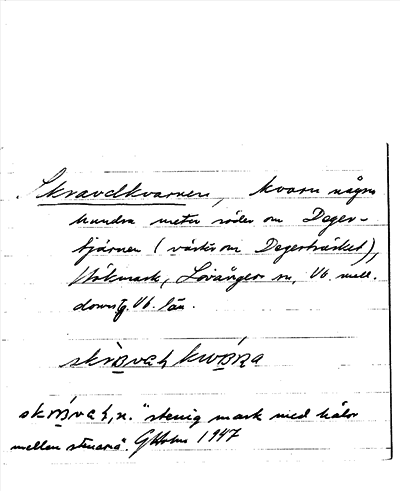 Skravdkvarnen, kvarn några
hundra meter söder om Deger-
tjärnen (väster om Degerträsket),
Hökmark, Lövånger sn, Vb. mell.
domsg. Vb. län.
skravdh kwɒɳa
skravdh, n. "stenig mark med hålor
mellan stenarna". GHolm 1947